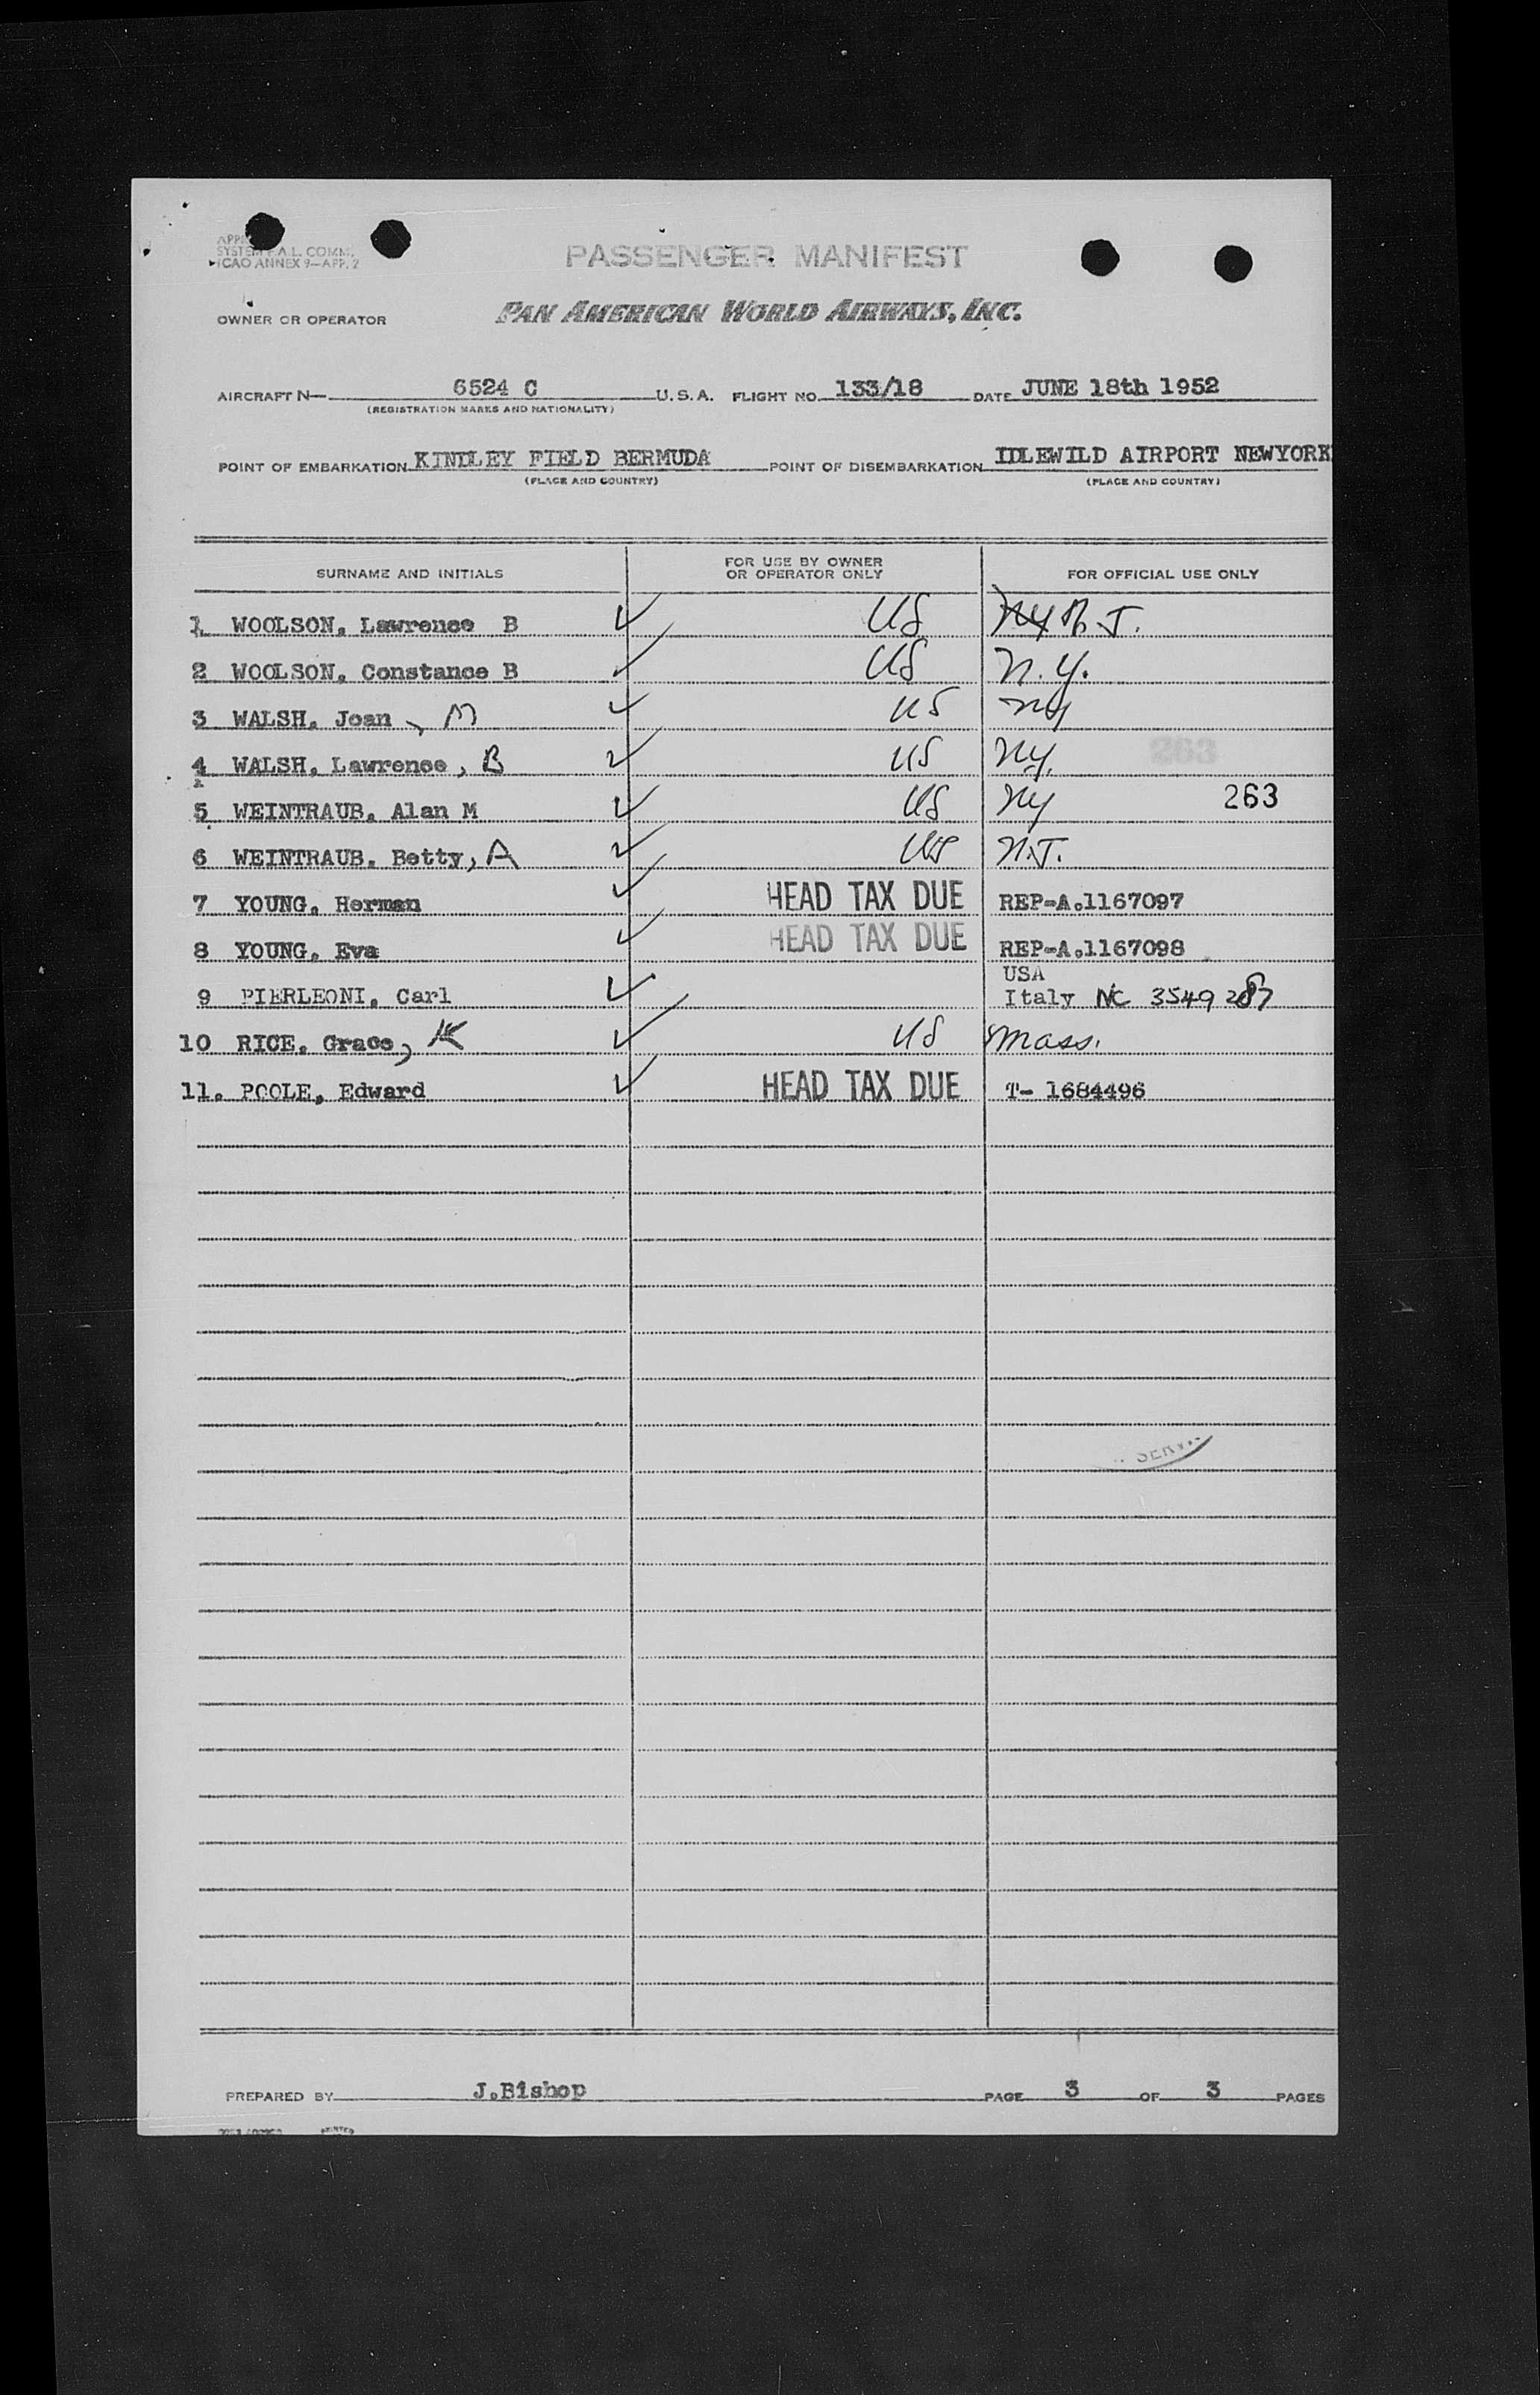 SYSTEM P.A.L. COMM.
ICAO ANNEX 9—APP. 2
PASSENGER MANIFEST
OWNER OR OPERATOR PAN AMERICAN WORLD AIRWAYS, INC.
AIRCRAFT N— 6524 C U.S.A. FLIGHT NO. 133/18 DATE JUNE 18th 1952
(REGISTRATION MARKS AND NATIONALITY)
POINT OF EMBARKATION KINDLEY FIELD BERMUDA POINT OF DISEMBARKATION IDLEWILD AIRPORT NEWYORK
(PLACE AND COUNTRY) (PLACE AND COUNTRY)
SURNAME AND INITIALS FOR USE BY OWNER OR OPERATOR ONLY FOR OFFICIAL USE ONLY
1 WOOLSON, Lawrence B ✓ US NY N.J.
2 WOOLSON, Constance B ✓ US N.Y.
3 WALSH, Joan, M ✓ US NY
4 WALSH, Lawrence, B ✓ US NY. 263
5 WEINTRAUB, Alan M ✓ US NY 263
6 WEINTRAUB, Betty, A ✓ US N.J.
7 YOUNG, Herman ✓ HEAD TAX DUE REP-A.1167097
8 YOUNG, Eva ✓ HEAD TAX DUE REP-A.1167098
USA
9 PIERLEONI, Carl ✓ Italy NC 3549287
10 RICE, Grace, K ✓ US Mass.
11. POOLE, Edward ✓ HEAD TAX DUE T- 1684496
PREPARED BY J.Bishop PAGE 3 OF 3 PAGES